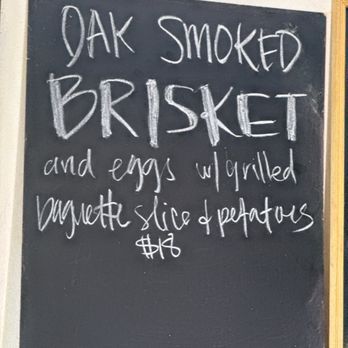 OAK SMOKED
BRISKET
and eggs w/ grilled
baguette slice & potatoes
$18